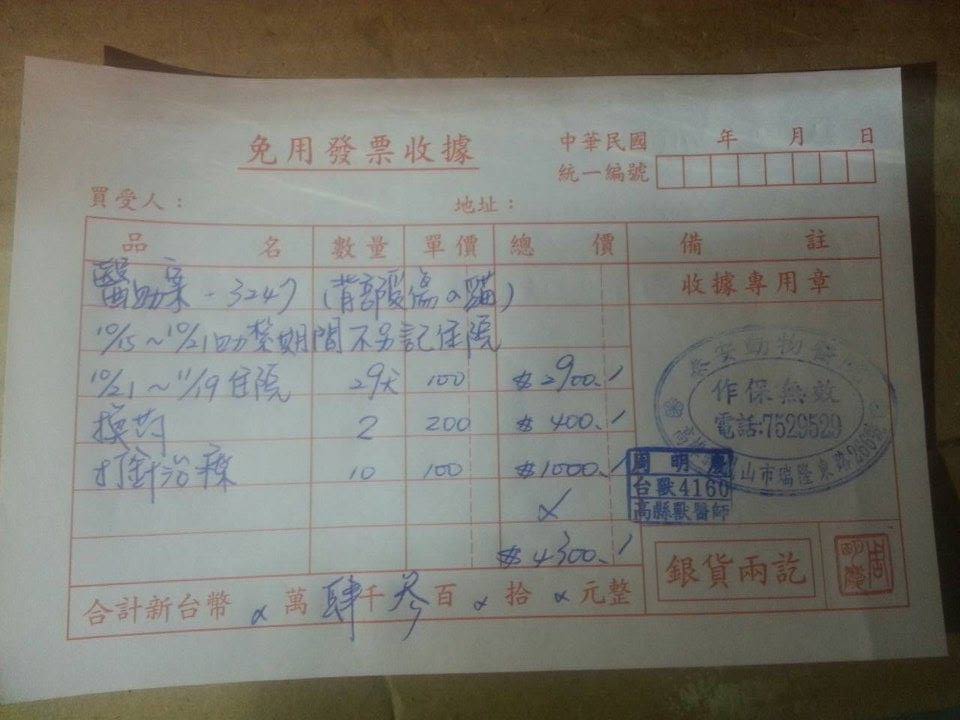 免用發票收據
中華民國 年 月 日
統一編號
買受人： 地址：
品名 數量 單價 總價 備註
醫助案-3247 (背部受傷α貓)
收據專用章
10/15~10/21 期間不另記住院
10/21~11/19住院 29天 100 $2900.
換葯 2 200 $400.
打針治療 10 100 $1000.
$4300.
合計新台幣 α萬肆千參百α拾α元整
動物
作保無效
電話:7529529
山市瑞隆東路200號
周明慶
台獸4160
高縣獸醫師
銀貨兩訖
周明慶